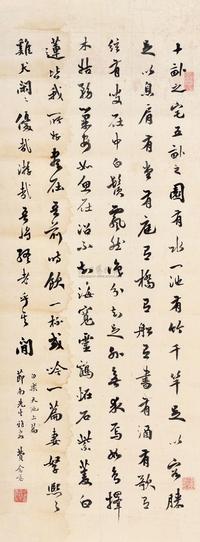 十畝之宅五畝之園有水一池有竹千竿足以容膝
足以息肩有堂有庭有橋有船有書有酒有歌有
弦有叟在中白鬚飄然識分知足外無求焉如鳥擇
木姑務巢安如魚在沼不知海寬靈鶴怪石紫菱白
蓮皆我所好盡在吾前時飲一杯或吟一篇妻孥熙々
雞犬閑々優哉游哉吾將終老乎其間
白樂天池上篇
節南先生